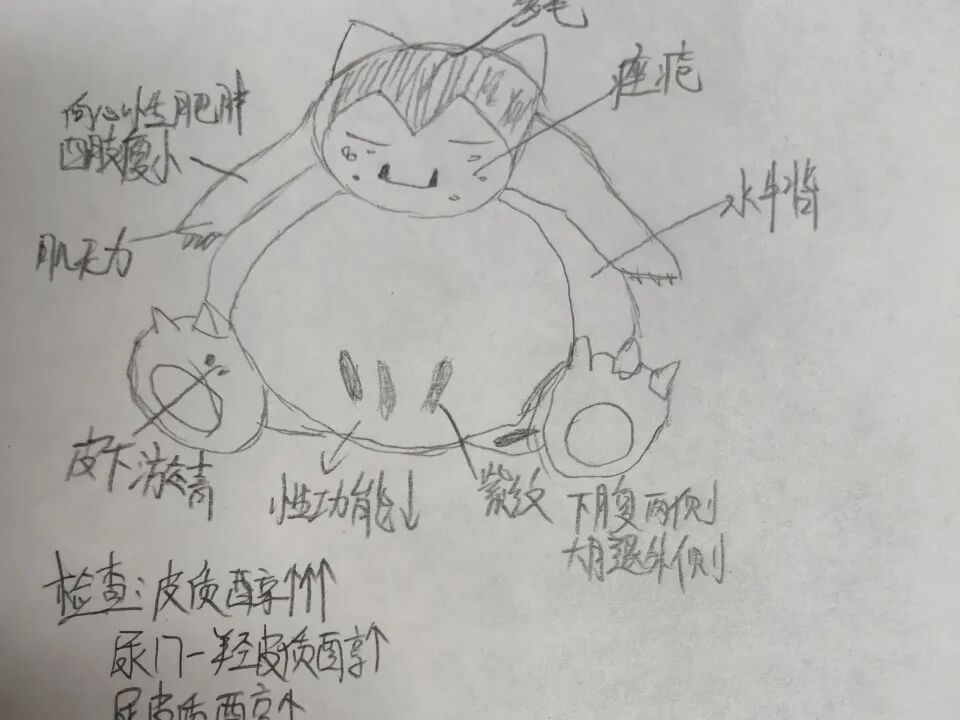 多毛
痤疮
向心性肥胖
四肢瘦小
水牛背
肌无力
皮下淤青
性功能↓
紫纹
下腹两侧
大腿外侧
检查：皮质醇↑↑↑
尿17-羟皮质醇↑
尿皮质醇↑